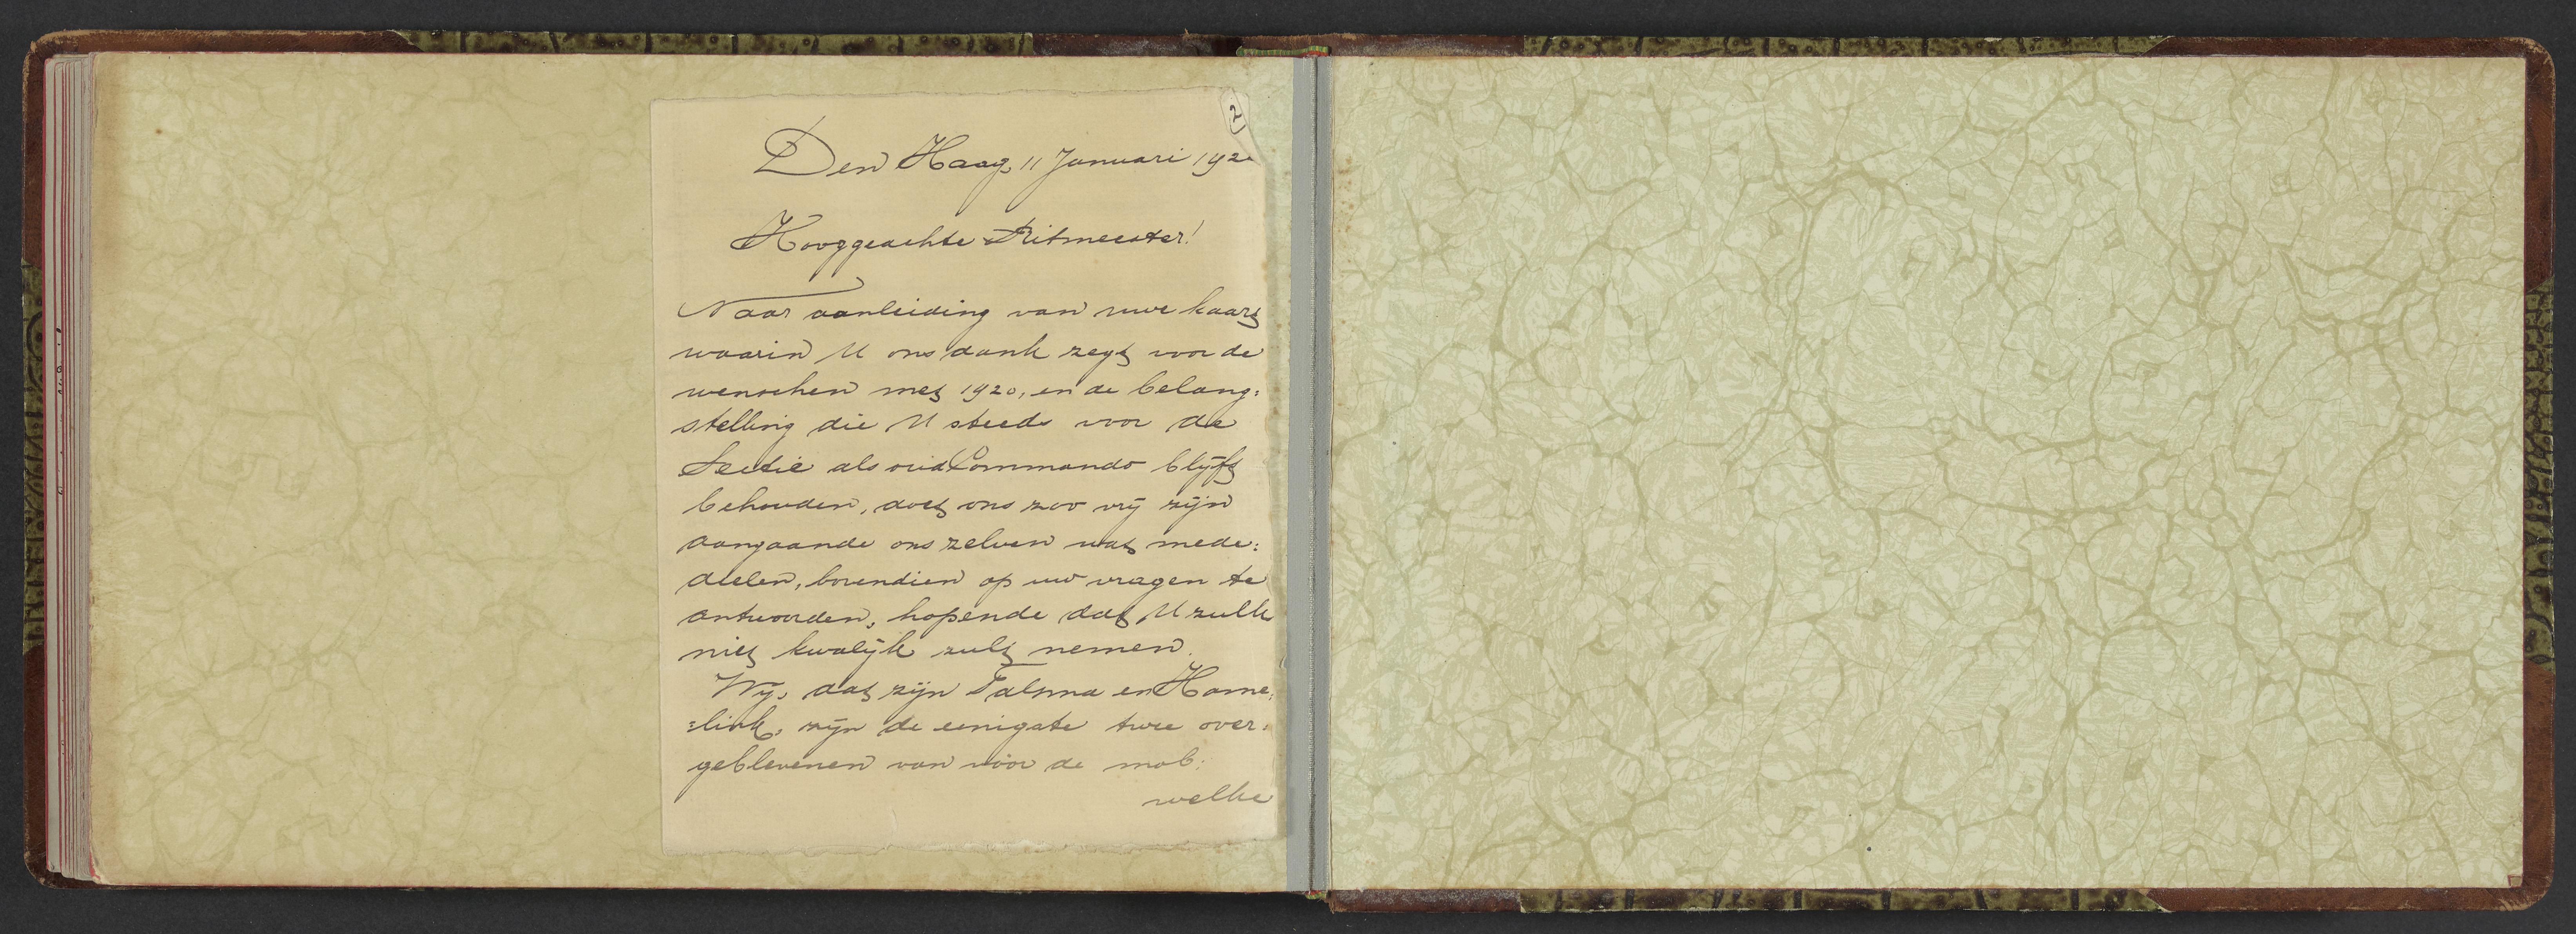 2
Den Haag, 11 Januari 192
Hooggeachte Ritmeester!
Naar aanleiding van uwe kaart
waarin U ons dank zegt voor de
wenschen met 1920, en de belang:
stelling die U steeds voor de
Sectie als oud Commando blijft
behouden, doet ons zoo vrij zijn
aangaande ons zelven wat mede:
deelen, bovendien op uw vragen te
antwoorden, hopende dat U zulk
niet kwalijk zult nemen.
Wij, dat zijn Talsma en Hame:
:link, zijn de eenigste twee over:
geblevenen van vóór de mob:
welke